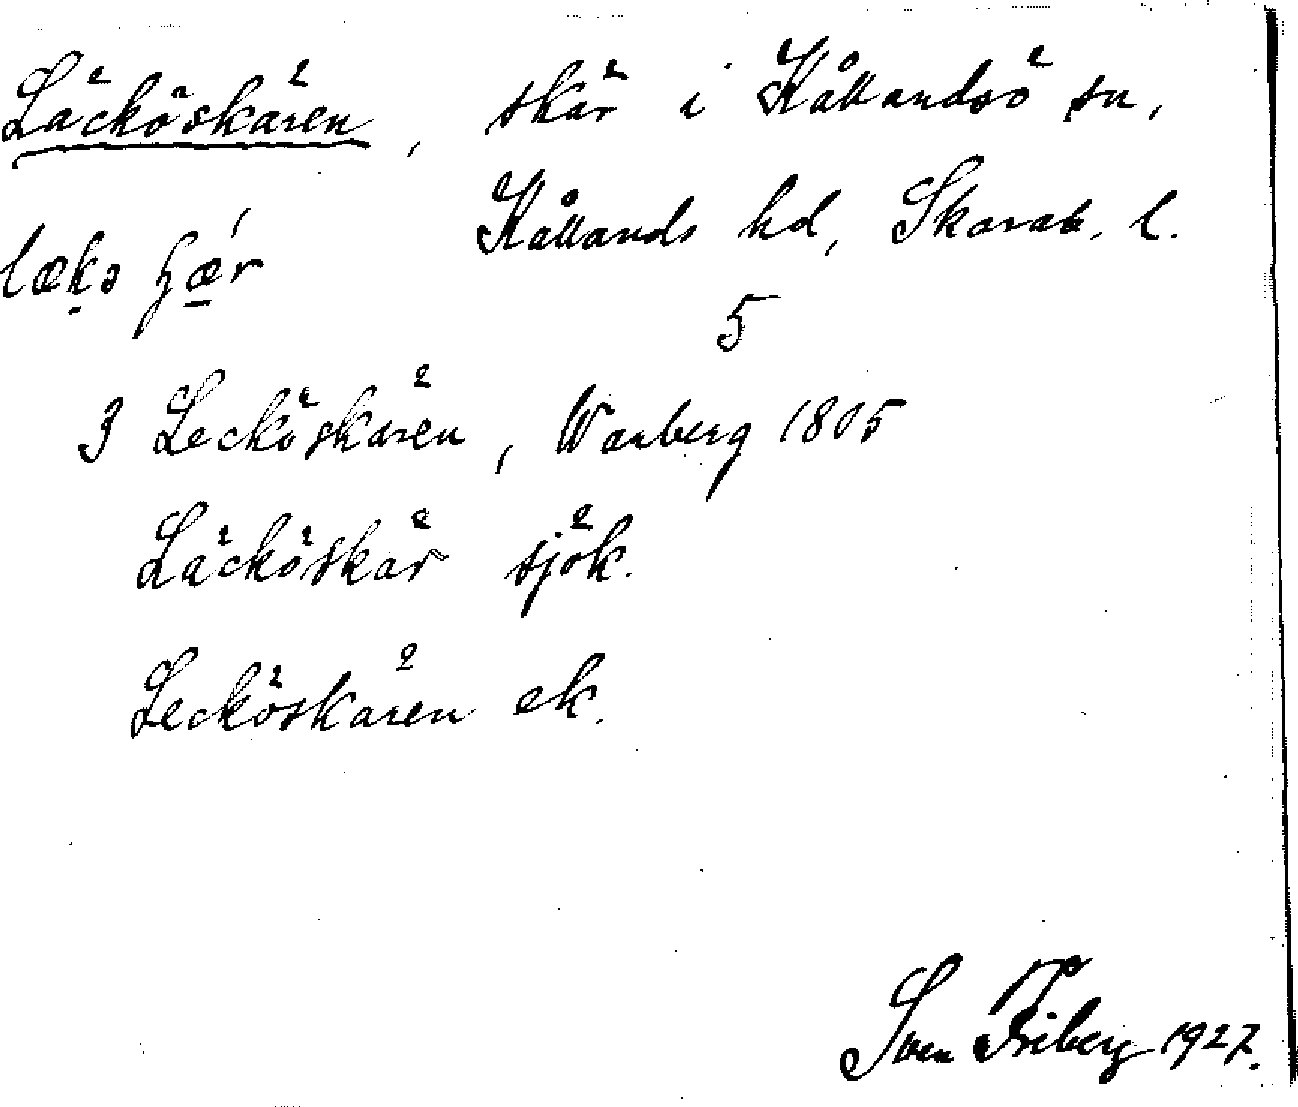 Läcköskären, skär i Kållandsö sn,
Kållands hd, Skarab. l.
5
3 Leckösskären, Warberg 1805
Läcköskär sjök.
Lecköskären ek.
Sven Friberg 1927.